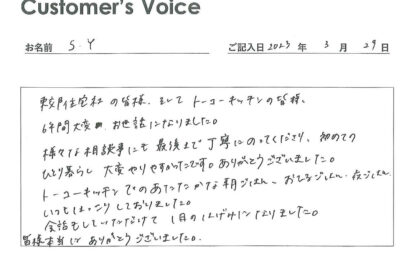 Customer's Voice
お名前 S.Y ご記入日 2023 年 3 月 29 日
東郊住宅社の皆様、そして トーコーキッチンの皆様、
6年間大変 お世話になりました。
様々な相談事にも 最後まで丁寧にのってくださり、初めての
ひとり暮らし 大変やりやすかったです。ありがとうございました。
トーコーキッチンでのあたたかな朝ごはん、おひるごはん、夜ごはん、
いつもほっこりしておりました。
会話もしていただけて 1月のはげみになりました。
皆様本当に ありがとうございました。